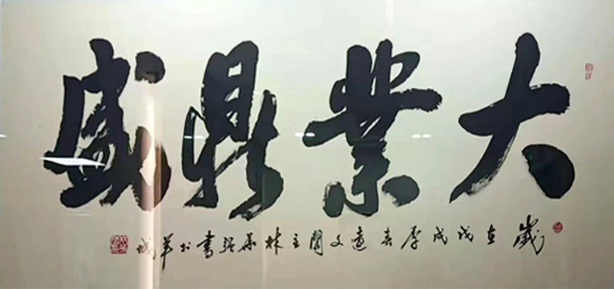 大業鼎盛
歲在戊戌年春 文閣主林 書於羊城